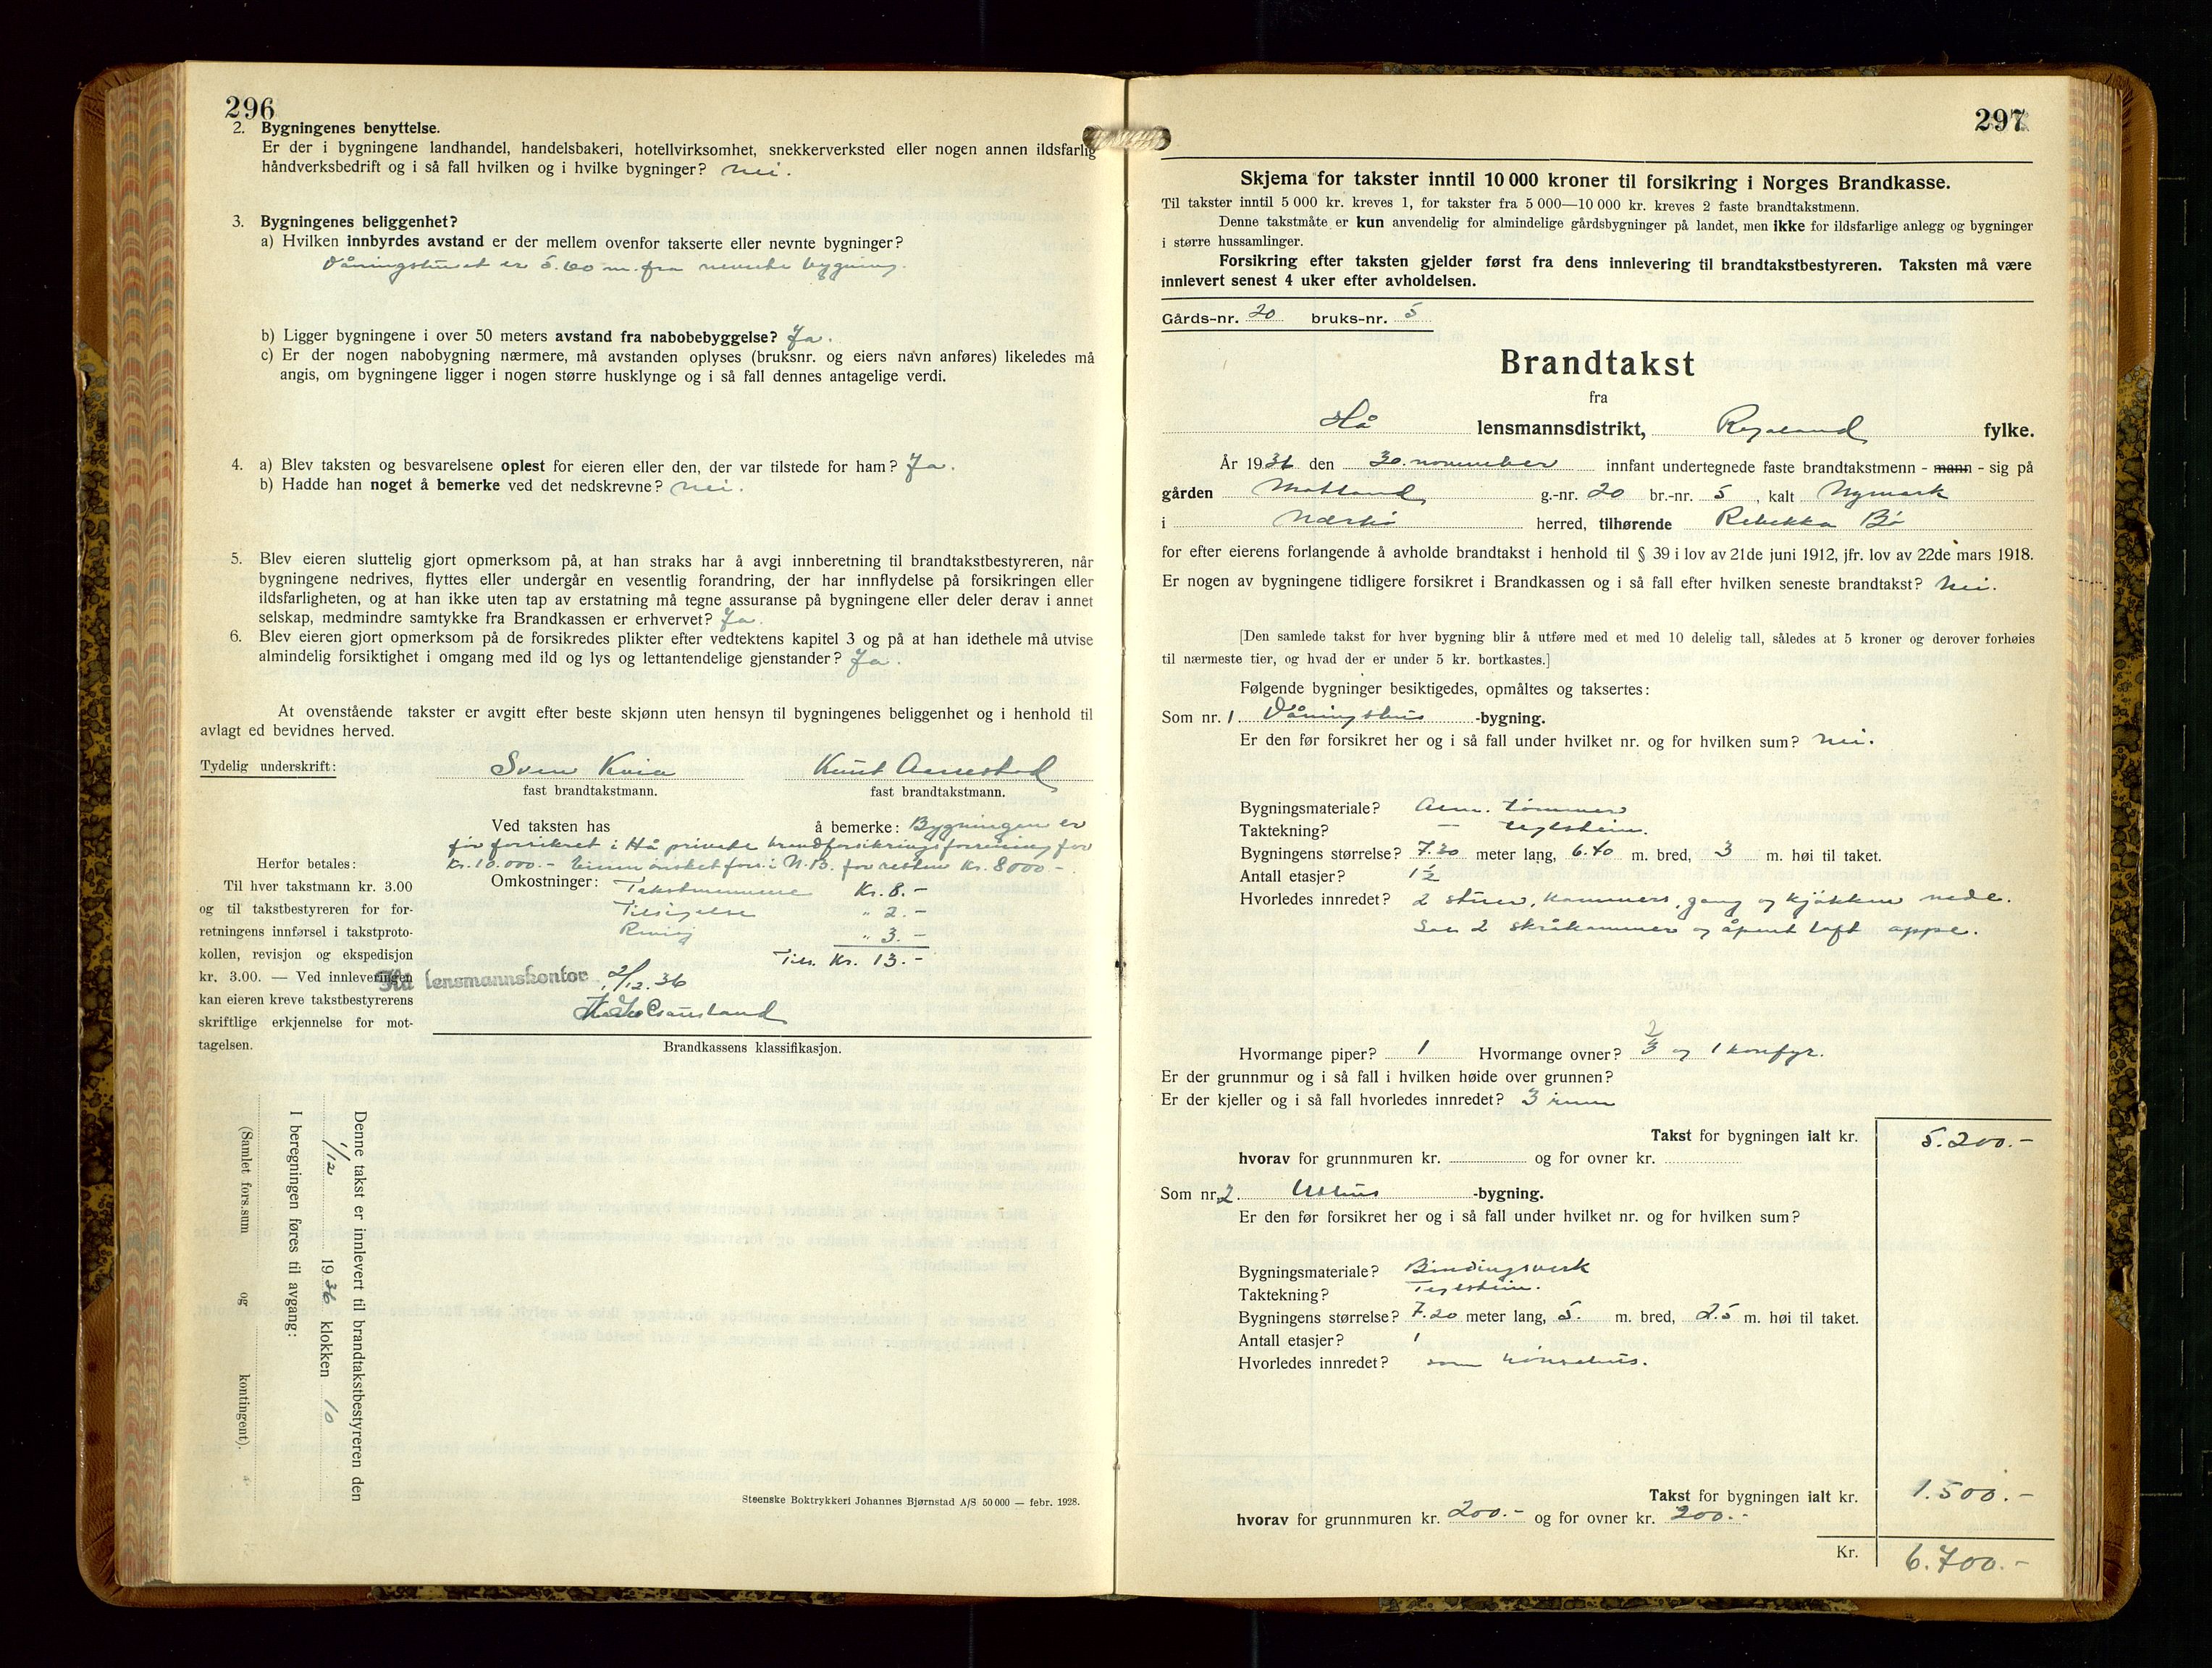 296
2. Bygningenes benyttelse.
Er der i bygningene landhandel, handelsbakeri, hotellvirksomhet, snekkerverksted eller nogen annen ildsfarlig
håndverksbedrift og i så fall hvilken og i hvilke bygninger? Nei.
3. Bygningenes beliggenhet?
a) Hvilken innbyrdes avstand er der mellem ovenfor takserte eller nevnte bygninger?
Våningshuset er 5.60 m. fra nevnte bygning.
b) Ligger bygningene i over 50 meters avstand fra nabobebyggelse? Ja.
c) Er der nogen nabobygning nærmere, må avstanden oplyses (bruksnr. og eiers navn anføres) likeledes må
angis, om bygningene ligger i nogen større husklynge og i så fall dennes antagelige verdi.
4. a) Blev taksten og besvarelsene oplest for eieren eller den, der var tilstede for ham? Ja.
b) Hadde han noget å bemerke ved det nedskrevne? Nei.
5. Blev eieren sluttelig gjort opmerksom på, at han straks har å avgi innberetning til brandtakstbestyreren, når
bygningene nedrives, flyttes eller undergår en vesentlig forandring, der har innflydelse på forsikringen eller
ildsfarligheten, og at han ikke uten tap av erstatning må tegne assuranse på bygningene eller deler derav i annet
selskap, medmindre samtykke fra Brandkassen er erhvervet? Ja.
6. Blev eieren gjort opmerksom på de forsikredes plikter efter vedtektens kapitel 3 og på at han idethele må utvise
almindelig forsiktighet i omgang med ild og lys og lettantendelige gjenstander? Ja.
At ovenstående takster er avgitt efter beste skjønn uten hensyn til bygningenes beliggenhet og i henhold til
avlagt ed bevidnes herved.
Tydelig underskrift: Sven Kvia Knut Aarrestad
fast brandtakstmann. fast brandtakstmann.
Ved taksten has å bemerke: Bygningen er
før forsikret i Hå private brandforsikringsforening for
Kr. 10.000.- ønsket fors. i N.B. for resten Kr. 8000.-
Omkostninger: Takstmennene Kr. 8.-
Tilsigelse " 2.-
" 3.-
Tils. Kr. 13.-
Hå lensmannskontor 2/12.36
Herfor betales:
Til hver takstmann kr. 3.00
og til takstbestyreren for for-
retningens innførsel i takstproto-
kollen, revisjon og ekspedisjon
kr. 3.00. — Ved innleveringen
kan eieren kreve takstbestyrerens
skriftlige erkjennelse for mot-
tagelsen.
Brandkassens klassifikasjon.
Denne takst er innlevert til brandtakstbestyreren den
1/12 1936 klokken 10
I beregningen føres til avgang:
(Samlet fors.sum og kontingent).
Steenske Boktrykkeri Johannes Bjørnstad A/S 50 000 — febr. 1928.
297
Skjema for takster inntil 10 000 kroner til forsikring i Norges Brandkasse.
Til takster inntil 5 000 kr. kreves 1, for takster fra 5 000—10 000 kr. kreves 2 faste brandtakstmenn.
Denne takstmåte er kun anvendelig for almindelige gårdsbygninger på landet, men ikke for ildsfarlige anlegg og bygninger
i større hussamlinger.
Forsikring efter taksten gjelder først fra dens innlevering til brandtakstbestyreren. Taksten må være
innlevert senest 4 uker efter avholdelsen.
Gårds-nr. 20 bruks-nr. 5
Brandtakst
fra
Hå lensmannsdistrikt, Rogaland fylke.
År 1936 den 30. november innfant undertegnede faste brandtakstmenn - mann - sig på
gården Motland g.-nr. 20 br.-nr. 5, kalt Nymark
i Nærbø herred, tilhørende Rebekka Bø
for efter eierens forlangende å avholde brandtakst i henhold til § 39 i lov av 21de juni 1912, jfr. lov av 22de mars 1918.
Er nogen av bygningene tidligere forsikret i Brandkassen og i så fall efter hvilken seneste brandtakst? Nei.
[Den samlede takst for hver bygning blir å utføre med et med 10 delelig tall, således at 5 kroner og derover forhøies
til nærmeste tier, og hvad der er under 5 kr. bortkastes.]
Følgende bygninger besiktigedes, opmåltes og taksertes:
Som nr. 1 Våningshus -bygning.
Er den før forsikret her og i så fall under hvilket nr. og for hvilken sum? Nei.
Bygningsmateriale? Alm. tømmer
Taktekning? — teglstein.
Bygningens størrelse? 7.20 meter lang, 6.40 m. bred, 3 m. høi til taket.
Antall etasjer? 1½
Hvorledes innredet? 2 stuer, kammers, gang og kjøkken nede.
2 skråkammer og åpent loft oppe.
Hvormange piper? 1 Hvormange ovner? 2 3 og 1 komfyr.
Er der grunnmur og i så fall i hvilken høide over grunnen?
Er der kjeller og i så fall hvorledes innredet? 3 rum
Takst for bygningen ialt kr. 5.200.-
hvorav for grunnmuren kr. og for ovner kr.
Som nr. 2. Uthus -bygning.
Er den før forsikret her og i så fall under hvilket nr. og for hvilken sum?
Bygningsmateriale? Bindingsverk
Taktekning? Teglstein.
Bygningens størrelse? 7.20 meter lang, 5. m. bred, 2.5 m. høi til taket.
Antall etasjer? 1
Hvorledes innredet? som hønsehus.
Takst for bygningen ialt kr. 1.500.-
hvorav for grunnmuren kr. 200.- og for ovner kr. 200.-
Kr. 6.700.-